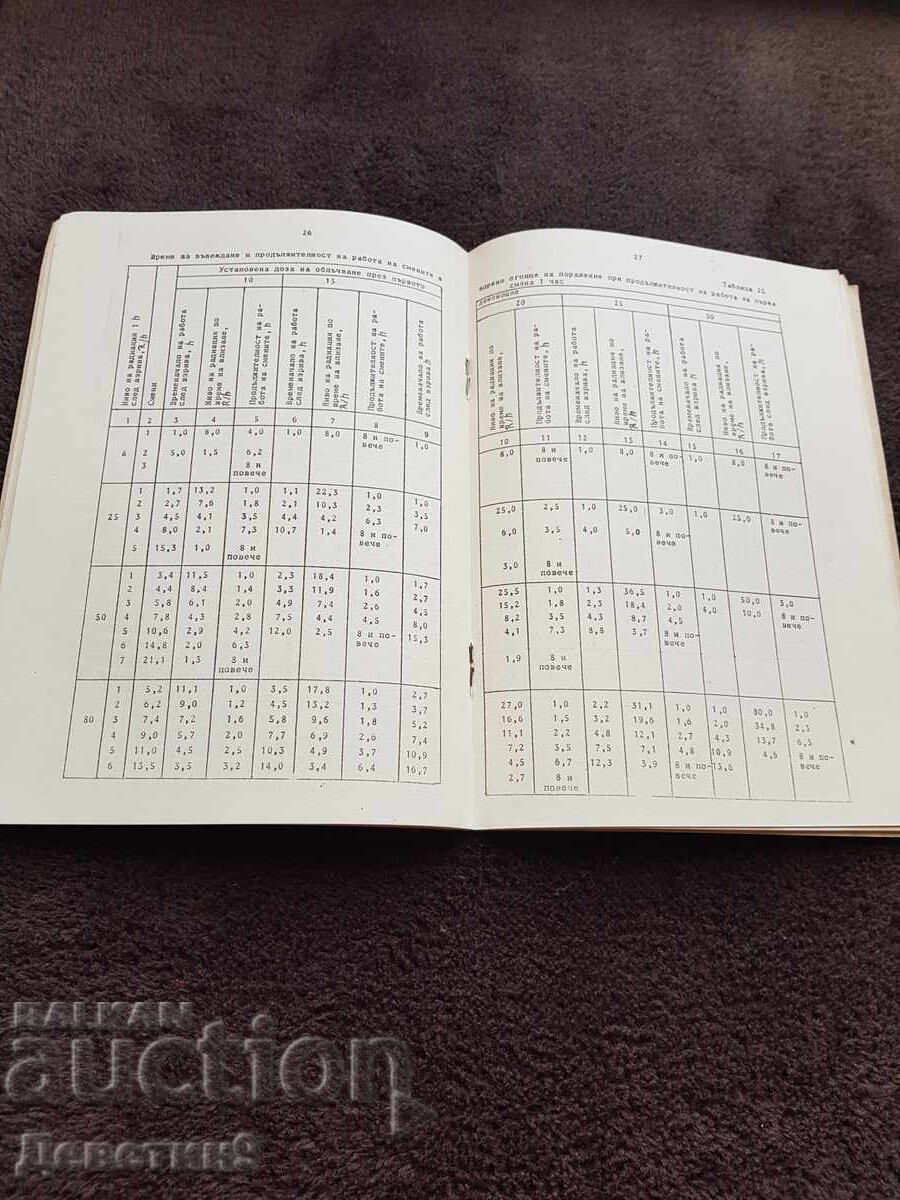 26
Време за въвеждане и продължителност на работа на смените в
Установена доза на облъчване през първото
10 15
Ниво на радиация 1 h след взрива, R/h
Смени
Време начало на работа след взрива, h
Ниво на радиация по време на влизане, R/h
Продължителност на работа на смените, h
Време начало на работа след взрива, h
Ниво на радиация по време на влизане, R/h
Продължителност на работа на смените, h
Време начало на работа след взрива, h
1 2 3 4 5 6 7 8 9
8
1 1,0 8,0 4,0 1,0 8,0 8 и повече 1,0
2 5,0 1,5 6,2
3 8 и повече
25
1 1,7 13,2 1,0 1,1 22,3 1,0 1,0
2 2,7 7,6 1,8 2,1 10,3 2,3 3,5
3 4,5 4,1 3,5 4,4 4,2 6,3 7,0
4 8,0 2,1 7,3 10,7 1,4 8 и повече
5 15,3 1,0 8 и повече
50
1 3,4 11,5 1,0 2,3 18,4 1,0 1,7
2 4,4 8,4 1,4 3,3 11,9 1,6 2,7
3 5,8 6,1 2,0 4,9 7,4 2,6 4,5
4 7,8 4,3 2,8 7,5 4,4 4,5 8,0
5 10,6 2,9 4,2 12,0 2,5 8 и повече 15,3
6 14,8 2,0 6,3
7 21,1 1,3 8 и повече
80
1 5,2 11,1 1,0 3,5 17,8 1,0 2,7
2 6,2 9,0 1,2 4,5 13,2 1,3 3,7
3 7,4 7,2 1,6 5,8 9,6 1,8 5,2
4 9,0 5,7 2,0 7,7 6,9 2,6 7,4
5 11,0 4,5 2,5 10,3 4,9 3,7 10,9
6 13,5 3,5 3,2 14,0 3,4 6,4 16,7
27
Таблица 25
ядрено огнище на поражение при продължителност на работа на първа
смяна 1 час
денонощие
20 25 50
Ниво на радиация по време на влизане, R/h
Продължителност на работа на смените, h
Време начало на работа след взрива, h
Ниво на радиация по време на влизане, R/h
Продължителност на работа на смените, h
Време начало на работа след взрива, h
Ниво на радиация по време на влизане, R/h
Продължителност на работа след взрива, h
10 11 12 13 14 15 16 17
8,0 8 и повече 1,0 8,0 8 и повече 1,0 8,0 8 и повече
25,0 2,5 1,0 25,0 3,0 1,0 25,0 8 и повече
6,0 3,5 4,0 5,0 8 и повече
3,0 8 и повече
25,5 1,0 1,3 36,5 1,0 1,0 50,0 3,0
15,2 1,8 2,3 18,4 2,0 4,0 10,0 8 и повече
8,2 3,5 4,3 8,7 4,5
4,1 7,3 8,8 3,7 8 и повече
1,9 8 и повече
27,0 1,0 2,2 31,1 1,0 1,0 80,0 1,0
16,6 1,5 3,2 19,6 1,6 2,0 34,8 2,3
11,1 2,2 4,8 12,1 2,7 4,3 13,7 6,3
7,2 3,5 7,5 7,1 4,8 10,9 4,5 8 и повече
4,5 6,7 12,3 3,9 8 и повече 13,6
2,7 8 и повече
BALKAN
auction
Деветин9